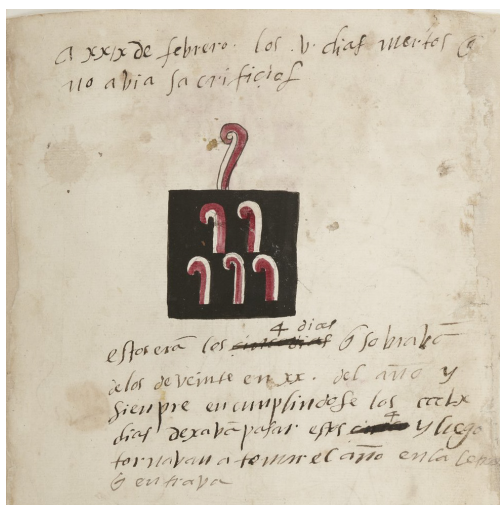 A xxix de febrero. los .v. dias mertos q̃
no abia sacrificios
4 dias
estos erã los cinco dias q̃ sobrabã
delos de veinte en xx. del año y
sienpre en cunplindose los ccclx
4
dias dexavã pasar estos cinco y luego
tornavan a tomar el año en la
q̃ entrava